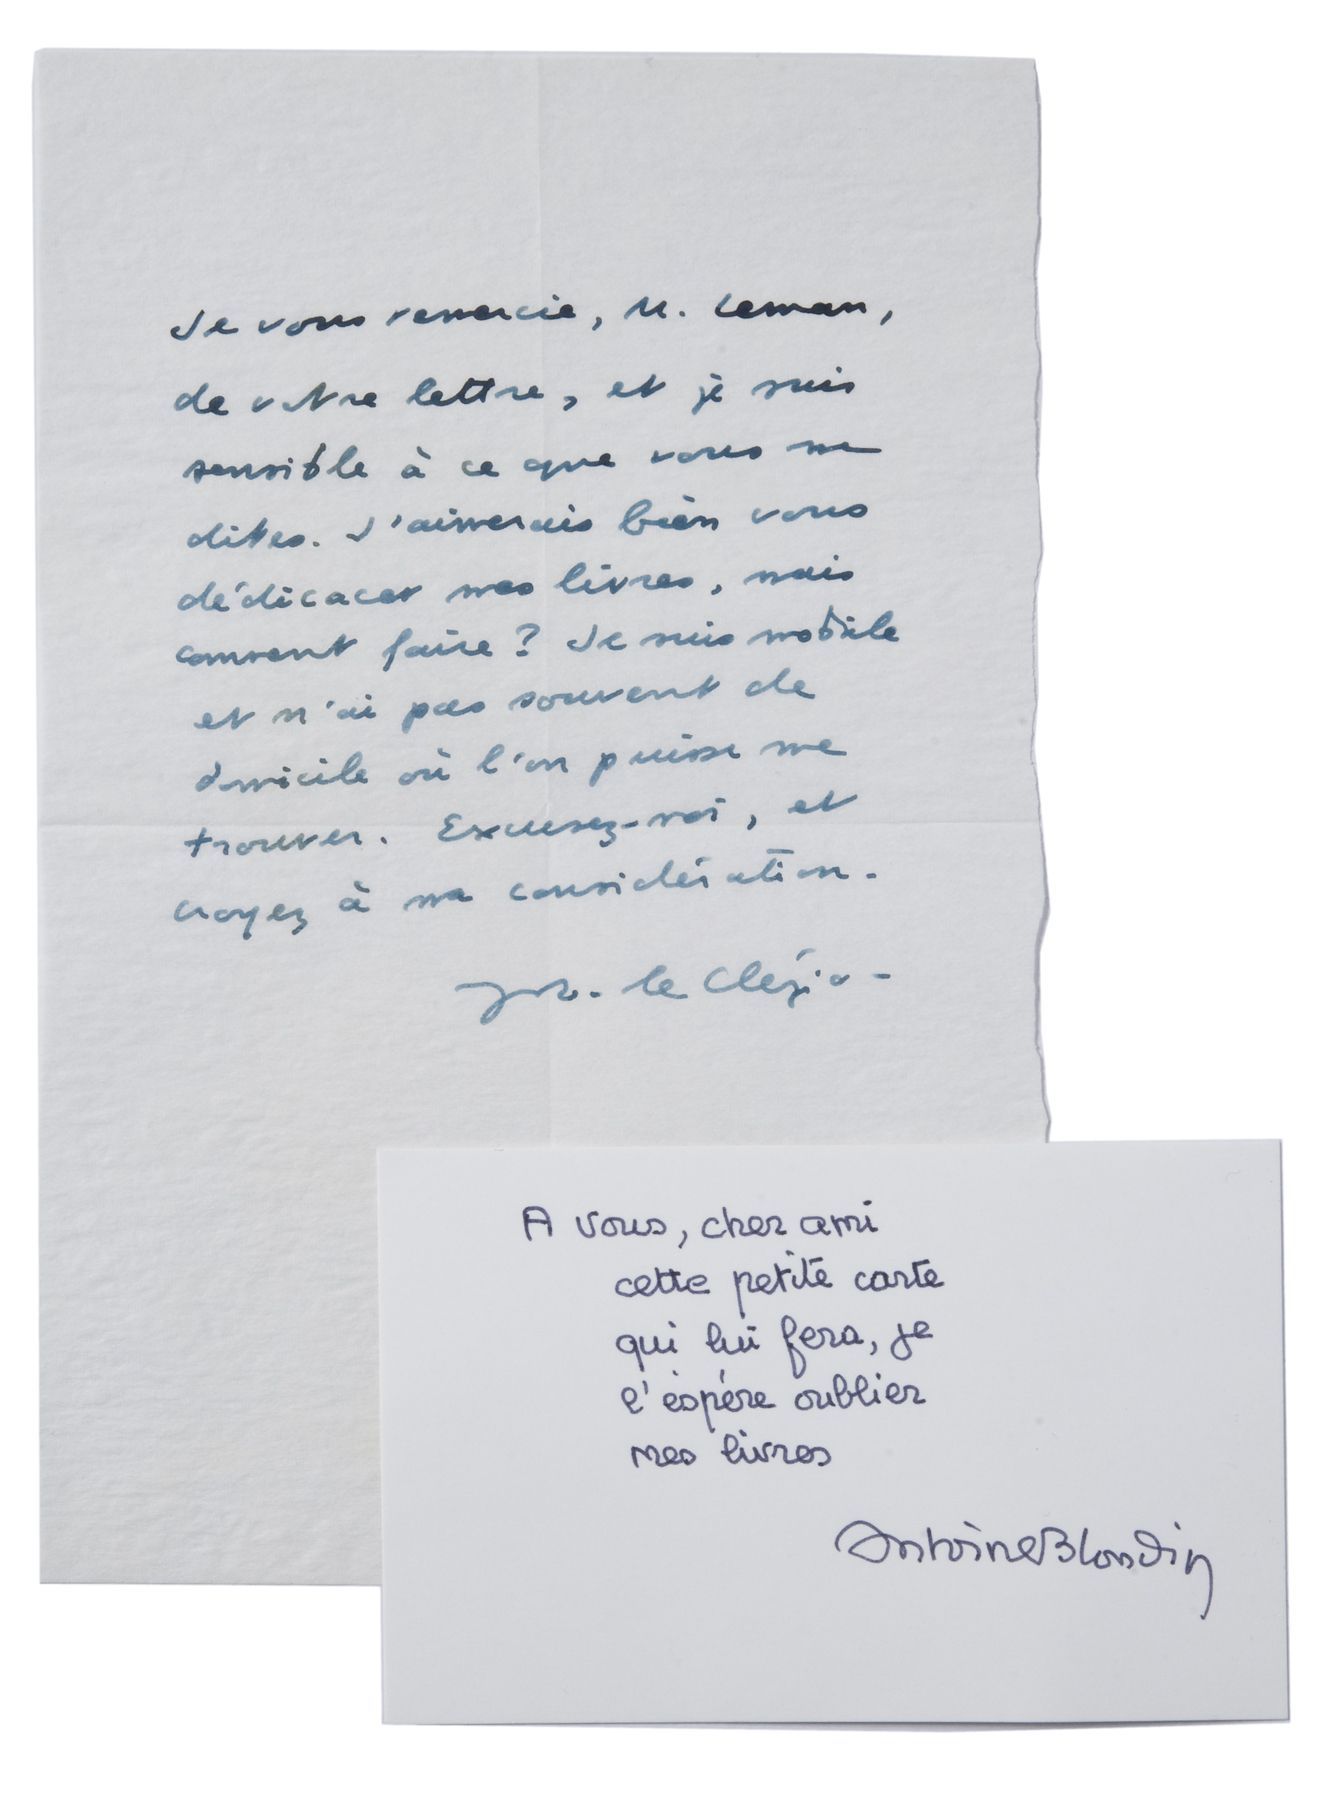 Je vous remercie, M. Leman,
de votre lettre, et je suis
sensible à ce que vous me
dites. J'aimerais bien vous
dédicacer mes livres, mais
comment faire? Je suis mobile
et n'ai pas souvent de
domicile où l'on puisse me
trouver. Excusez-moi, et
croyez à ma considération.
le Clézio
A vous, cher ami
cette petite carte
qui lui fera, je
l'espère oublier
mes livres
Antoine Blondin